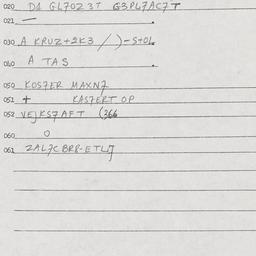 020 D1 GL7OZ3T G3PL7AC7T
021 —
030 A KRUZ+2K3 / )-S+OL
040 A TAS
050 KOS7ER MAXN7
051 + KAS7ERT OP
052 VEJKS7AFT (366
060 O
061 2AL7C BRP-ETL7